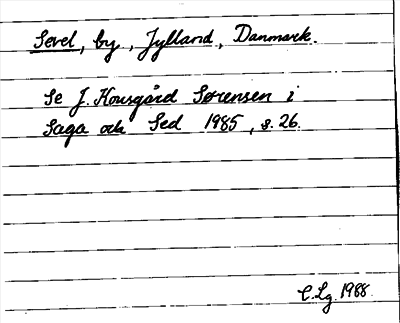 Sevel, by, Jylland, Danmark.
Se J. Kousgård Sørensen i
Saga och Sed 1985, s. 26.
C.Lg. 1988.